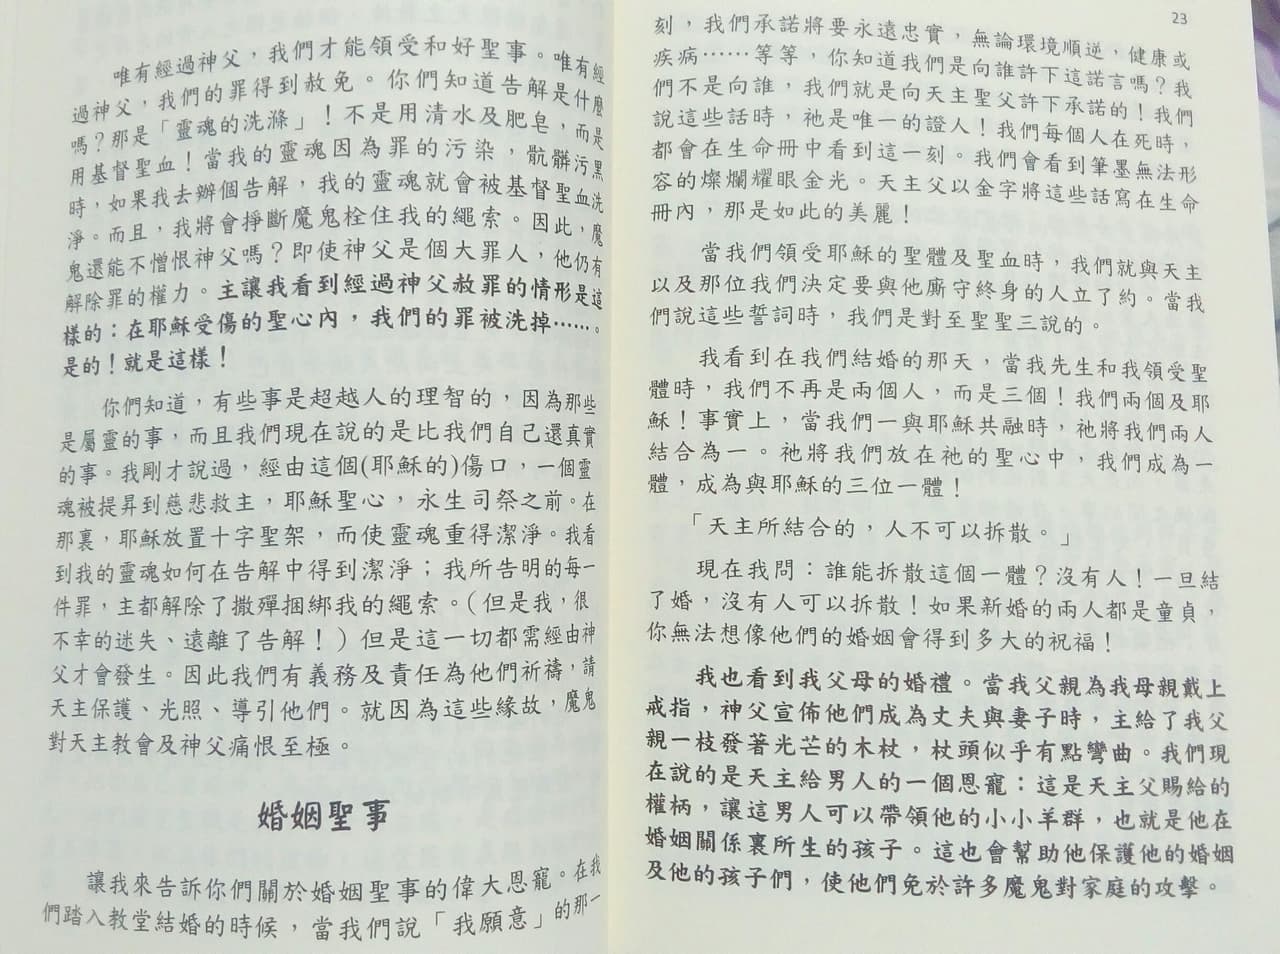 唯有經過神父，我們才能領受和好聖事。唯有經
過神父，我們的罪得到赦免。你們知道告解是什麼
嗎？那是「靈魂的洗滌」！不是用清水及肥皂，而是
用基督聖血！當我的靈魂因為罪的污染，骯髒污黑
時，如果我去辦個告解，我的靈魂就會被基督聖血洗
淨。而且，我將會掙斷魔鬼栓住我的繩索。因此，魔
鬼還能不憎恨神父嗎？即使神父是個大罪人，他仍有
解除罪的權力。主讓我看到經過神父赦罪的情形是這
樣的：在耶穌受傷的聖心內，我們的罪被洗掉……。
是的！就是這樣！
你們知道，有些事是超越人的理智的，因為那些
是屬靈的事，而且我們現在說的是比我們自己還真實
的事。我剛才說過，經由這個(耶穌的)傷口，一個靈
魂被提昇到慈悲救主，耶穌聖心，永生司祭之前。在
那裏，耶穌放置十字聖架，而使靈魂重得潔淨。我看
到我的靈魂如何在告解中得到潔淨；我所告明的每一
件罪，主都解除了撒殫捆綁我的繩索。（但是我，很
不幸的迷失、遠離了告解！）但是這一切都需經由神
父才會發生。因此我們有義務及責任為他們祈禱，請
天主保護、光照、導引他們。就因為這些緣故，魔鬼
對天主教會及神父痛恨至極。
婚姻聖事
讓我來告訴你們關於婚姻聖事的偉大恩寵。在我
們踏入教堂結婚的時候，當我們說「我願意」的那一
23
刻，我們承諾將要永遠忠實，無論環境順逆，健康或
疾病……等等，你知道我們是向誰許下這諾言嗎？我
們不是向誰，我們就是向天主聖父許下承諾的！我們
說這些話時，祂是唯一的證人！我們每個人在死時，
都會在生命冊中看到這一刻。我們會看到筆墨無法形
容的燦爛耀眼金光。天主父以金字將這些話寫在生命
冊內，那是如此的美麗！
當我們領受耶穌的聖體及聖血時，我們就與天主
以及那位我們決定要與他廝守終身的人立了約。當我
們說這些誓詞時，我們是對至聖聖三說的。
我看到在我們結婚的那天，當我先生和我領受聖
體時，我們不再是兩個人，而是三個！我們兩個及耶
穌！事實上，當我們一與耶穌共融時，祂將我們兩人
結合為一。祂將我們放在祂的聖心中，我們成為一
體，成為與耶穌的三位一體！
「天主所結合的，人不可以拆散。」
現在我問：誰能拆散這個一體？沒有人！一旦結
了婚，沒有人可以拆散！如果新婚的兩人都是童貞，
你無法想像他們的婚姻會得到多大的祝福！
我也看到我父母的婚禮。當我父親為我母親戴上
戒指，神父宣佈他們成為丈夫與妻子時，主給了我父
親一枝發著光芒的木杖，杖頭似乎有點彎曲。我們現
在說的是天主給男人的一個恩寵：這是天主父賜給的
權柄，讓這男人可以帶領他的小小羊群，也就是他在
婚姻關係裏所生的孩子。這也會幫助他保護他的婚姻
及他的孩子們，使他們免於許多魔鬼對家庭的攻擊。